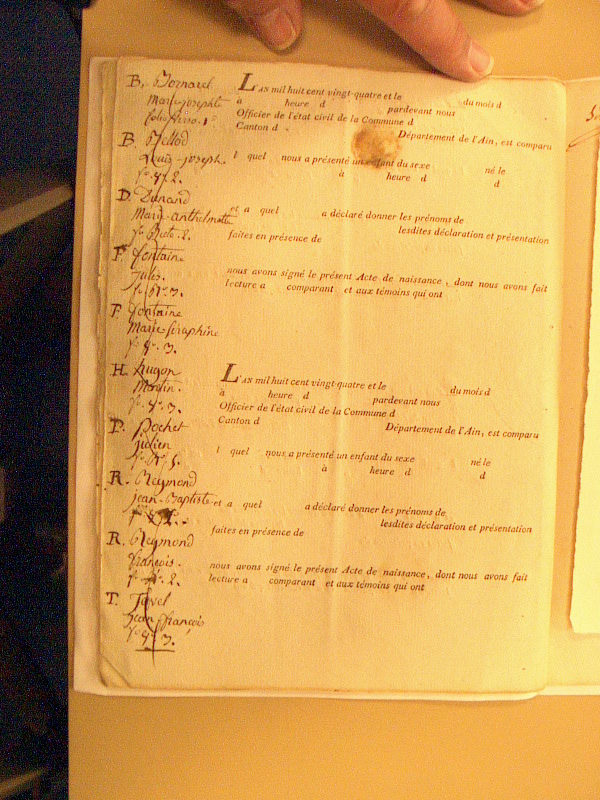 B. Bornard
Marie josephte
folio 1
B. Bellod
Louis-joseph.
D. Dunand
Marie-anthelmette
F. fontaine
Jules.
F. fontaine
Marie Séraphine
H. hugon
Martin.
P. Pochet
julien
R. Reymond
jean-Baptiste
R. Reymond
françois.
T. 
jean françois
LAN mil huit cent vingt-quatre et le du mois d
à heure d pardevant nous
Officier de l'état civil de la Commune d
Canton d Département de l'Ain, est comparu
l quel nous a présenté un enfant du sexe né le
à heure d d
et a quel a déclaré donner les prénoms de
lesdites déclaration et présentation
faites en présence de
nous avons signé le présent Acte de naissance, dont nous avons fait
lecture a comparant et aux témoins qui ont
L'AN mil huit cent vingt-quatre et le du mois d
à heure d pardevant nous
Officier de l'état civil de la Commune d
Canton d Département de l'Ain, est comparu
l quel nous a présenté un enfant du sexe né le
à heure d d
et a quel a déclaré donner les prénoms de
lesdites déclaration et présentation
faites en présence de
nous avons signé le présent Acte de naissance, dont nous avons fait
lecture a comparant et aux témoins qui ont